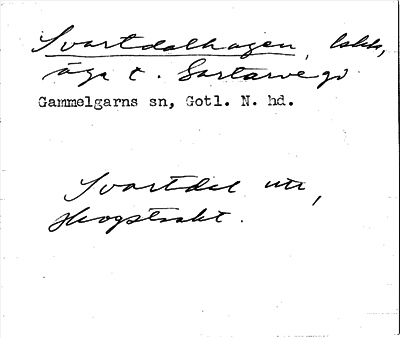 Svartdalhagen, bebk,
äga t. Sartarve gd
Gammelgarns sn, Gotl. N. hd.
Svartdal utr,
skogstrakt.